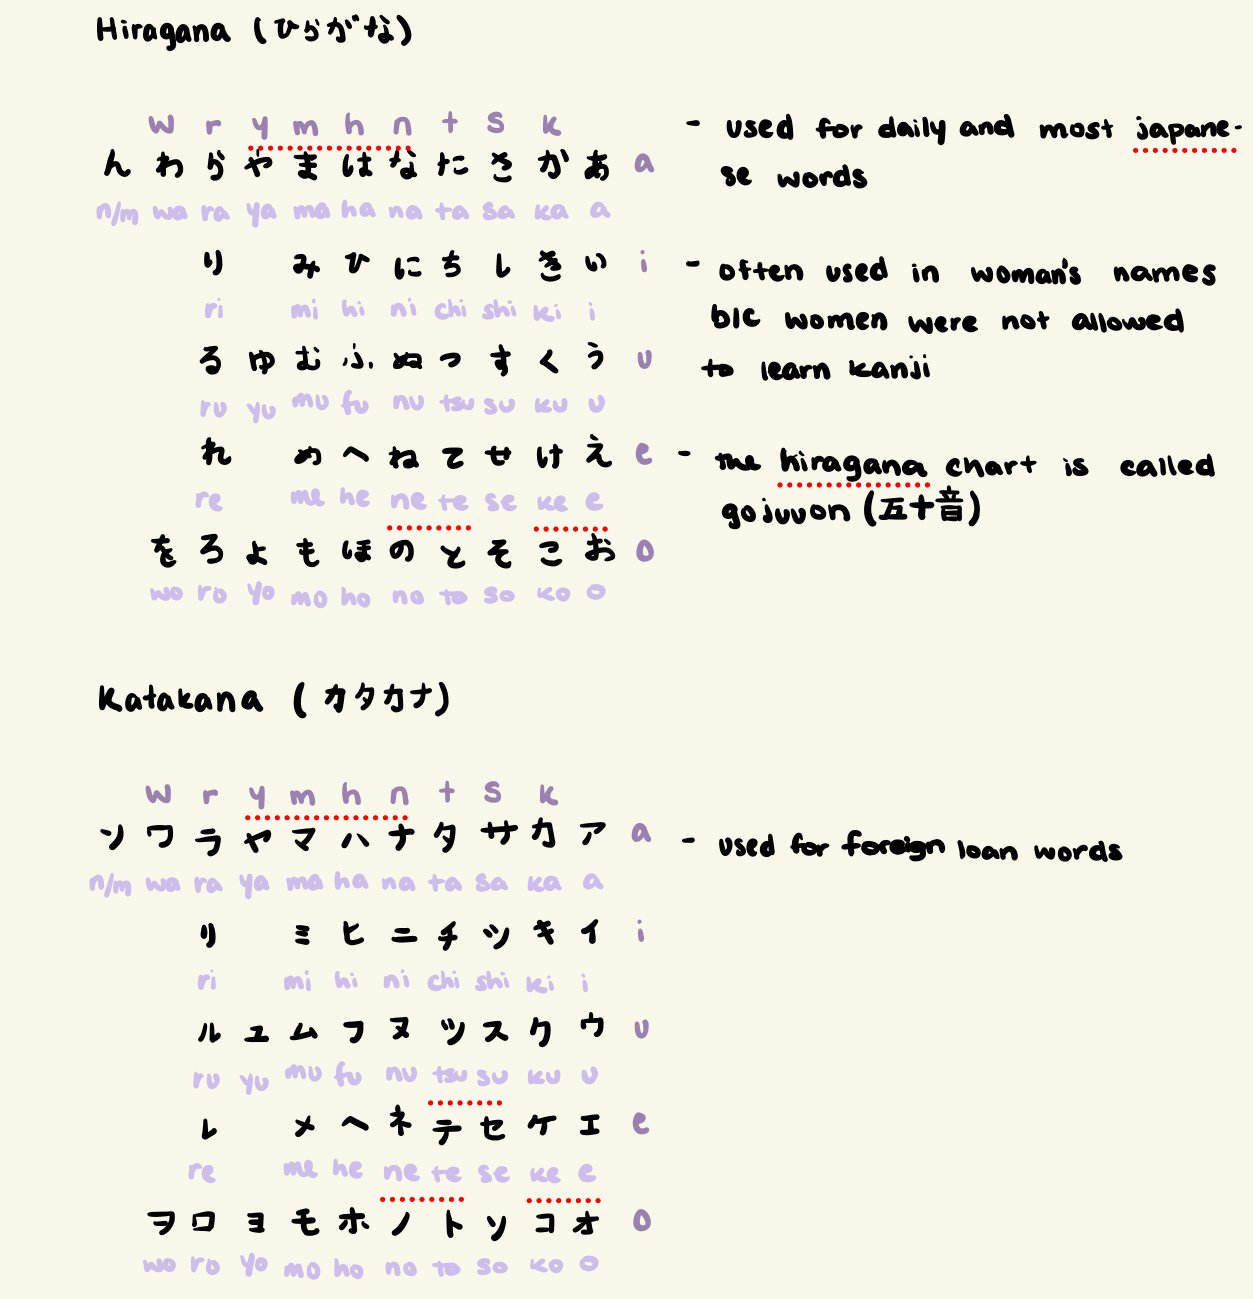 Hiragana (ひらがな)
w r y m h n t s k
ん わ ら や ま は な た さ か あ a
n/m wa ra ya ma ha na ta sa ka a
り み ひ に ち し き い i
ri mi hi ni chi shi ki i
る ゆ む ふ ぬ つ す く う u
ru yu mu fu nu tsu su ku u
れ め へ ね て せ け え e
re me he ne te se ke e
を ろ よ も ほ の と そ こ お o
wo ro yo mo ho no to so ko o
- used for daily and most japane-
se words
- often used in woman's names
b/c women were not allowed
to learn kanji
- the hiragana chart is called
gojuuon (五十音)
Katakana (カタカナ)
w r y m h n t s k
ン ワ ラ ヤ マ ハ ナ タ サ カ ア a
n/m wa ra ya ma ha na ta sa ka a
リ ミ ヒ ニ チ シ キ イ i
ri mi hi ni chi shi ki i
ル ユ ム フ ヌ ツ ス ク ウ u
ru yu mu fu nu tsu su ku u
レ メ ヘ ネ テ セ ケ エ e
re me he ne te se ke e
ヲ ロ ヨ モ ホ ノ ト ソ コ オ o
wo ro yo mo ho no to so ko o
- used for foreign loan words